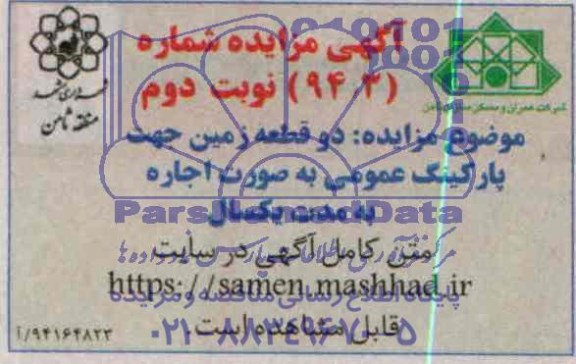 آگهی مزایده شماره
(۹۴۰۳) نوبت دوم
شهرداری مشهد
منطقه ثامن
شرکت عمران و مسکن سازان ثامن
موضوع مزایده: دو قطعه زمین جهت
پارکینگ عمومی به صورت اجاره
به مدت یکسال
ParsNamadData
متن کامل آگهی در سایت
https://samen.mashhad.ir
پایگاه اطلاع رسانی مناقصه و مزایده
قابل مشاهده است.
۰۲۱-۸۸۳۴۹۶۷۰-۵
۹۴۱۶۴۸۲۳/آ